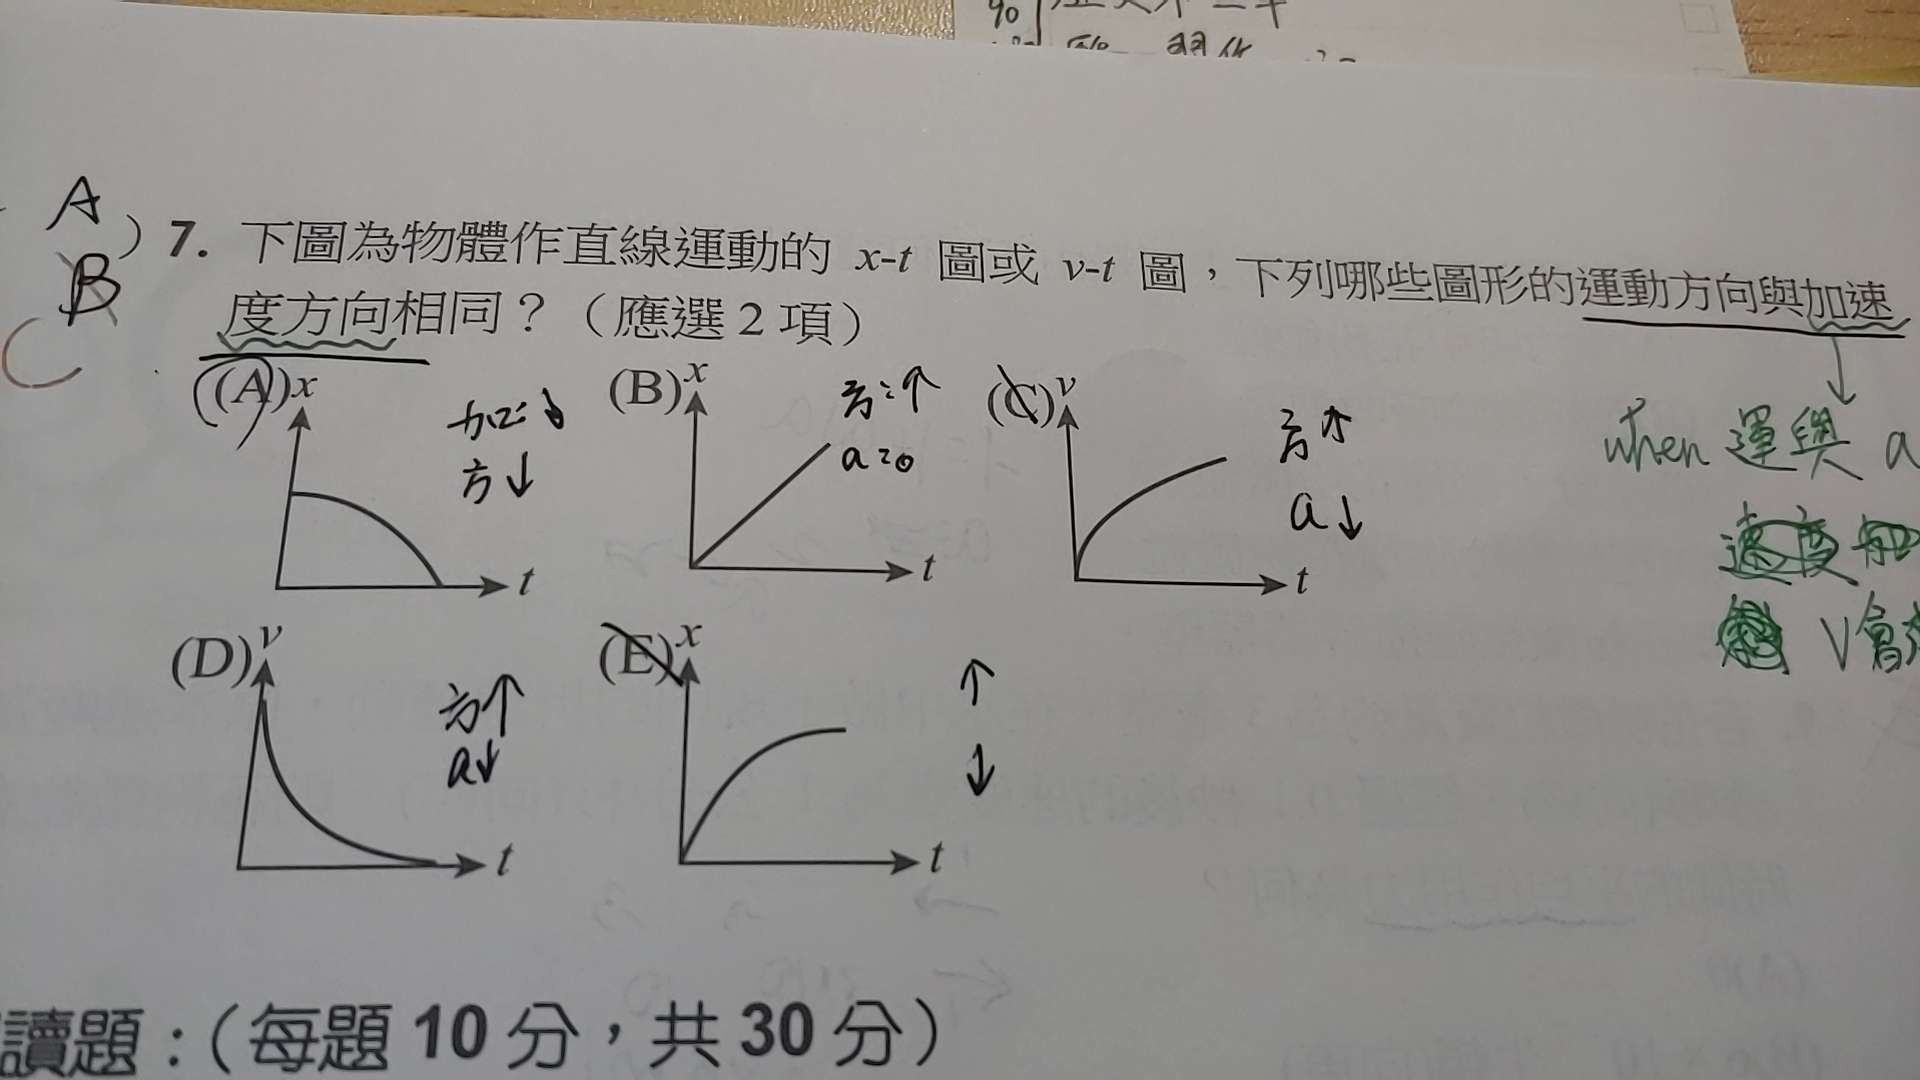 90
A
B
C
) 7. 下圖為物體作直線運動的 x-t 圖或 v-t 圖，下列哪些圖形的運動方向與加速
度方向相同？（應選 2 項）
(A) x
t
加:↓
方↓
(B) x
t
方:↑
a=0
(C) v
t
方↑
a↓
when 運與 a
V會
(D) v
t
方↑
a↓
(E) x
t
↑
↓
讀題：（每題 10 分，共 30 分）